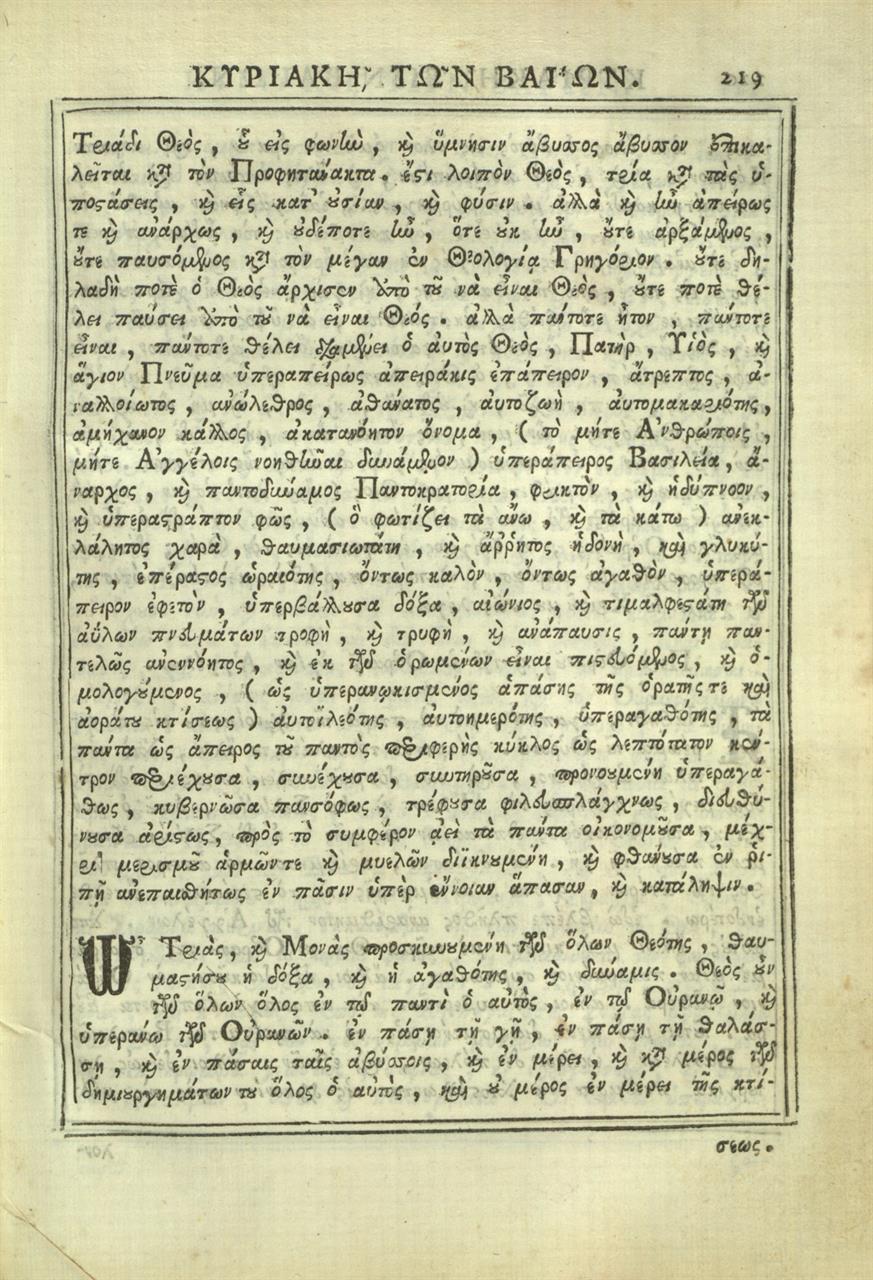 ΚΥΡΙΑΚΗ͂, ΤΩ͂Ν ΒΑΙ´ΩΝ. 219
Τριάδι Θεὸς, ȣ̔͂ εἰς φωνὴν, ϗ̀ ὕμνησιν ἄβυσσος ἄβυσσον ἐπικα-
λεῖται κατὰ τὸν Προφητάνακτα. ἔϛι λοιπὸν Θεὸς, τρία κατὰ τὰς ὑ-
ποϛάσεις, ϗ̀ εἷς κατ' ȣ̓σίαν, ϗ̀ φύσιν. ἀλλὰ ϗ̀ ἦν ἀπείρως
τε ϗ̀ ἀνάρχως, ϗ̀ ȣ̓δέποτε ἦν, ὅτε ȣ̓κ ἦν, ȣ̓́τε ἀρξάμενος,
ȣ̓́τε παυσόμενος κατὰ τὸν μέγαν ἐν Θεολογίᾳ Γρηγόριον. ȣ̓́τε δη-
λαδὴ ποτὲ ὁ Θεὸς ἄρχισεν ἀπὸ τȣ͂ νὰ εἶναι Θεὸς, ȣ̓́τε ποτὲ θέ-
λει παύσει ἀπὸ τȣ͂ νὰ εἶναι Θεός. ἀλλὰ πάντοτε ἦτον, πάντοτε
εἶναι, πάντοτε θέλει διαμένει ὁ αὐτὸς Θεὸς, Πατὴρ, Υἱὸς, ϗ̀
ἅγιον Πνεῦμα ὑπεραπείρως ἀπειράκις ἐπάπειρον, ἄτρεπτος, ἀ-
ναλλοίωτος, ἀνώλεθρος, ἀθάνατος, αὐτοζωὴ, αὐτομακαριότης,
ἀμήχανον κάλλος, ἀκατανόητον ὄνομα, (τὸ μήτε Ἀνθρώποις,
μήτε Ἀγγέλοις νοηθῆναι δυνάμενον) ὑπεράπειρος Βασιλεία, ἄ-
ναρχος, ϗ̀ παντοδύναμος Παντοκρατορία, φρικτὸν, ϗ̀ ἡδύπνοον,
ϗ̀ ὑπεραϛράπτον φῶς, (ὃ φωτίζει τὰ ἄνω, ϗ̀ τὰ κάτω) ἀνεκ-
λάλητος χαρὰ, θαυμασιωτάτη, ϗ̀ ἄῤῥητος ἡδονὴ, καὶ γλυκύ-
της, ἐπέραϛος ὡραιότης, ὄντως καλὸν, ὄντως ἀγαθὸν, ὑπερά-
πειρον ἐφετὸν, ὑπερβάλλȣσα δόξα, αἰώνιος, ϗ̀ τιμαλφεϛάτη τῶν
ἀΰλων πνευμάτων τροφὴ, ϗ̀ τρυφὴ, ϗ̀ ἀνάπαυσις, πάντη παν-
τελῶς ἀνεννόητος, ϗ̀ ἐκ τῶν ὁρωμένων εἶναι πιϛευόμενος, ϗ̀ ὁ-
μολογȣ́μενος, (ὡς ὑπερανῳκισμένος ἁπάσης τῆς ὁρατῆς τε καὶ
ἀοράτȣ κτίσεως) αὐτοϊλεότης, αὐτοημερότης, ὑπεραγαθότης, τὰ
πάντα ὡς ἄπειρος τȣ͂ παντὸς περιφερὴς κύκλος ὡς λεπτότατον κέν-
τρον περιέχȣσα, συνέχȣσα, συντηρȣ͂σα, προνοȣμένη ὑπεραγά-
θως, κυβερνῶσα πανσόφως, τρέφȣσα φιλευσπλάγχνως, διευθύ-
νȣσα ἀρίϛως, πρὸς τὸ συμφέρον ἀεὶ τὰ πάντα οἰκονομȣ͂σα, μέχ-
ρι μερισμȣ͂ ἁρμῶν τε ϗ̀ μυελῶν διϊκνȣμένη, ϗ̀ φθάνȣσα ἐν ῥι-
πῇ ἀνεπαισθήτως ἐν πᾶσιν ὑπὲρ ἔννοιαν ἅπασαν, ϗ̀ κατάληψιν.
Ὦ Τριὰς, ϗ̀ Μονὰς προσκυνȣμένη τῶν ὅλων Θεότης, θαυ-
μαϛήσȣ ἡ δόξα, ϗ̀ ἡ ἀγαθότης, ϗ̀ δύναμις. Θεὸς ȣ̓͂ν
τῶν ὅλων ὅλος ἐν τῷ παντὶ ὁ αὐτὸς, ἐν τῷ Οὐρανῷ, ϗ̀
ὑπεράνω τῶν Οὐρανῶν. ἐν πάσῃ τῇ γῇ, ἐν πάσῃ τῇ θαλάσ-
σῃ, ϗ̀ ἐν πάσαις ταῖς ἀβύσσοις, ϗ̀ ἐν μέρει, ϗ̀ κατὰ μέρος τῶν
δημιȣργημάτων τȣ ὅλος ὁ αὐτὸς, καὶ ȣ̓ μέρος ἐν μέρει τῆς κτί-
σεως.